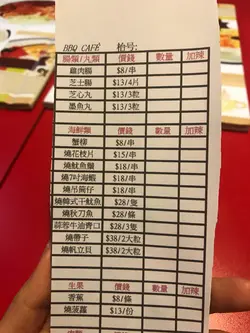 BBQ CAFÉ 枱号:
腸類/丸類 價錢 數量 加辣
雞肉腸 $8/串
芝士腸 $13/4片
芝心丸 $13/3粒
墨魚丸 $13/3粒
海鮮類 價錢 數量 加辣
蟹柳 $8/串
燒花枝片 $15/串
燒魷魚鬚 $18/串
燒7吋海蝦 $18/串
燒吊筒仔 $18/串
燒韓式干魷魚 $28/隻
燒秋刀魚 $28/條
蒜蓉牛油青口 $28/3隻
燒帶子 $38/2大粒
燒帆立貝 $38/2大粒
生果 價錢 數量 加辣
香蕉 $8/條
燒菠蘿 $13/份